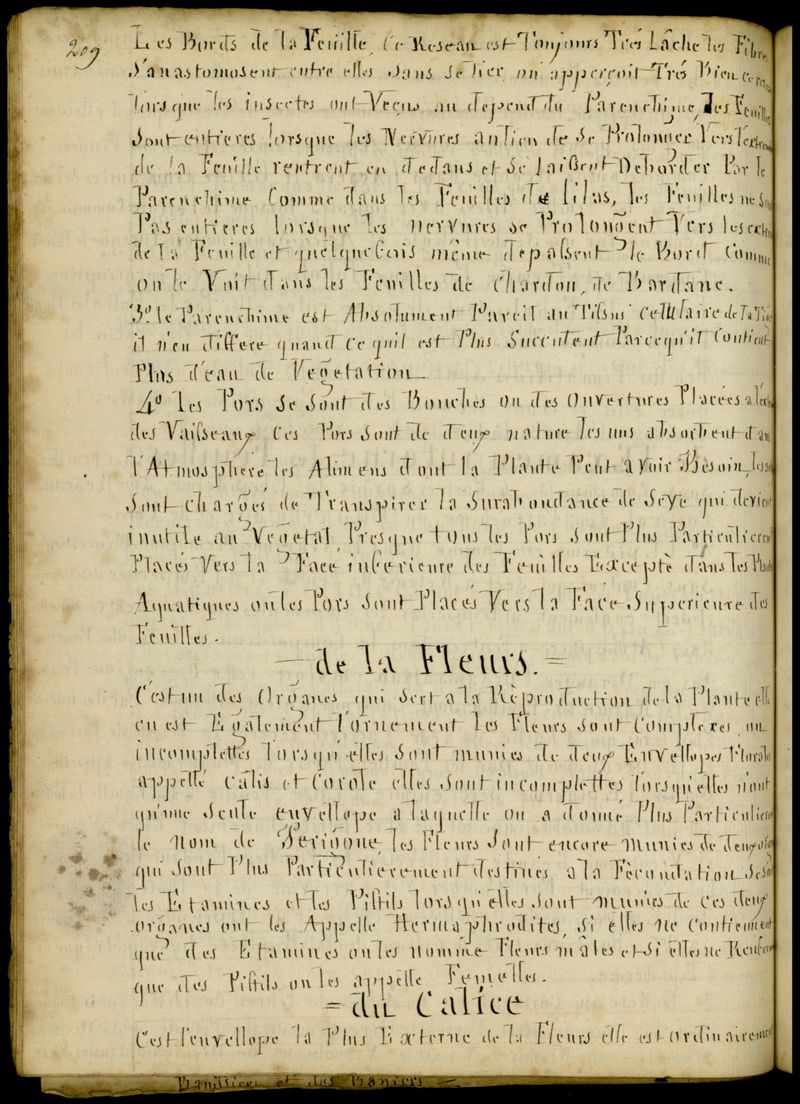 209
Les Bords de la Feuille, Ce Reseau est Toujours Trés Lâche les Fibre
S'anastomosent entre elles sans se lier on apperçoit Trés Bien
lorsque les insectes ont Veçus au depend du Parenchime, les Feuilles
sont entieres lorsque les Nervures au lieu de se Prolonger Vers l'extre
de la Feuille rentrent en dedans et se laissent Deborder Par le
Parenchime Comme dans les Feuilles de Lilas, les Feuilles ne so
Pas entieres lorsque les nervures se Prolongent Vers les extre
de la Feuille et quelquefois même depassent le Bord Comme
on le Voit dans les Feuilles de Chardon, de Bardane.
3º. le Parenchime est Absolument Pareil au Tissus Cellulaire de la
il n'en differe quand ce qu'il est Plus Succulent Parcequ'il Contient
Plus d'eau de Vegetation
4º les Pors se sont des Bouches ou des ouvertures Placées a l'ex
des Vaisseaux Ces Pors sont de deux nature les uns absorbent dan
l'Atmosphère les Alimens dont la Plante Peut avoir Besoin,
sont chargés de Transpirer la Surabondance de Seve qui devient
inutile au Vegetal, Presque tous les Pors sont Plus Particulierem
Placés Vers la Face inferieure des Feuilles Excepté dans les Plan
Aquatiques ou les Pors sont Placés Vers la Face Superieure des
Feuilles.
— de la Fleurs. =
C'est un des Organes qui sert a la Réproduction de la Plante elle
en est Egalement l'ornement les Fleurs sont Complexes, ou
incomplettes lorsqu'elles sont munies de deux Envellopes Florale
appellé Calis et Corole elles sont incomplettes lorsqu'elles n'ont
qu'une Seule envellope a laquelle on a donné Plus Particuliere
le nom de Perigone, les Fleurs sont encore munies de deux org
qui sont Plus Particulierement destinés a la Fécondation se so
les Etamines et les Pistils lorsqu'elles sont munies de ces deux
organes ont les Appelle Hermaphrodites, si elles ne Contiennent
que des Etamines on les nomme Fleurs mâles et si elles ne Renfer
que des Pistils on les appelle Femelles.
= du Calice
C'est l'envellope la Plus Externe de la Fleurs elle est ordinairemen
et des